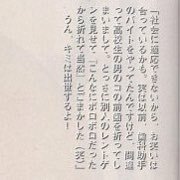 「社会に適応できないから、お笑いは
合っているかも。実は以前、歯科助手
のバイトをやってたんですけど、間違
って高校生の男のコの前歯を折ってし
まいまして。とっさに別人のレントゲ
ンを見せて『こんなにボロボロだった
から折れて当然』とごまかした(笑)」
うん、キミは出世するよ!